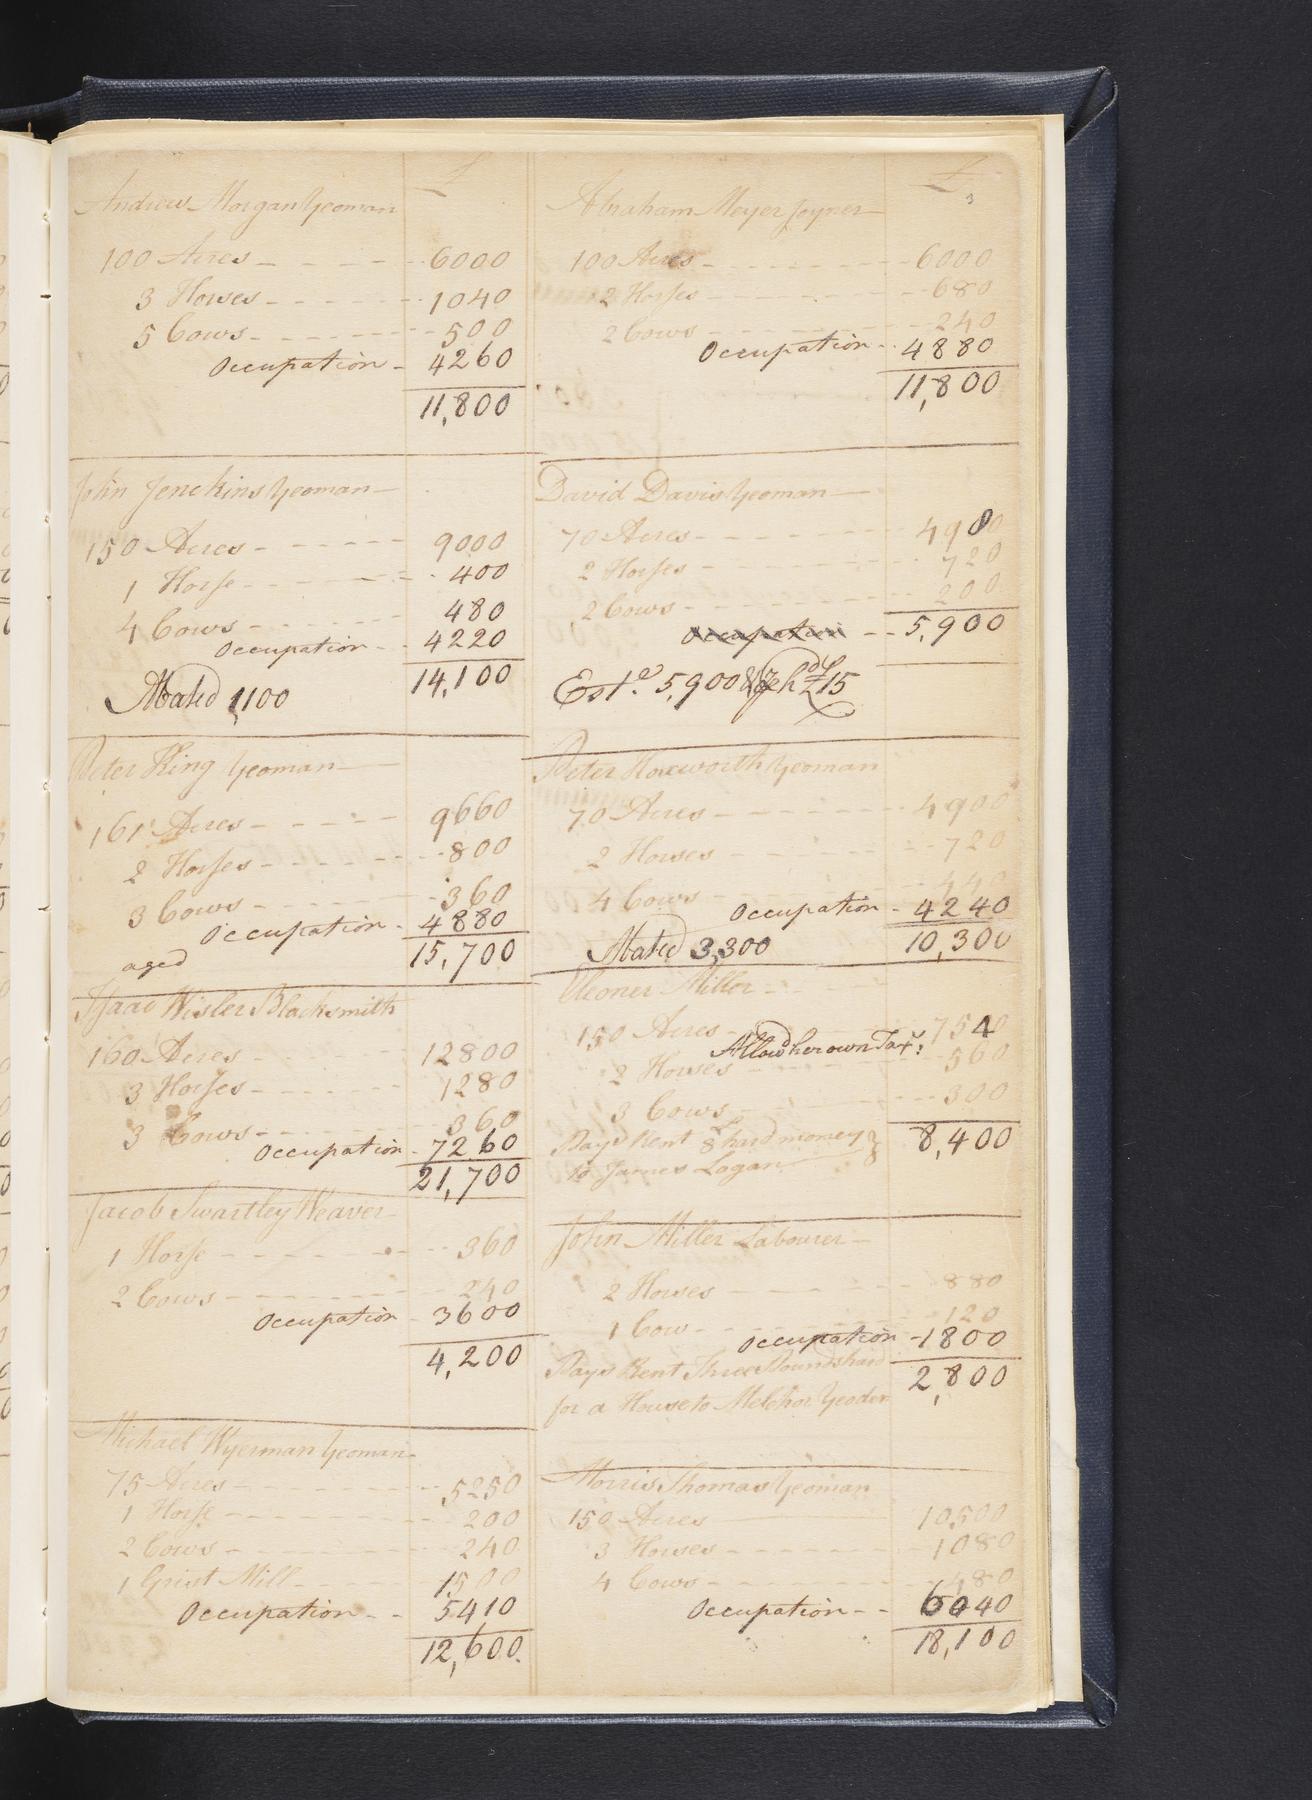 £
Andrew Morgan Yeoman
100 Acres 6000
3 Horses 1040
5 Cows 500
Occupation 4260
11,800
John Jenckins Yeoman
150 Acres 9000
1 Horse 400
4 Cows 480
Occupation 4220
14,100
Abated 1,100
Peter King Yeoman
161 Acres 9660
2 Horses 800
3 Cows 360
Occupation 4880
aged 15,700
Isaac Wisler Blacksmith
160 Acres 12800
3 Horses 1280
3 Cows 360
Occupation 7260
21,700
Jacob Swartley Weaver
1 Horse 360
2 Cows 240
Occupation 3600
4,200
Michael Wyerman Yeoman
75 Acres 5250
1 Horse 200
2 Cows 240
1 Grist Mill 1500
Occupation 5410
12,600
£
3
Abraham Meyer Joyner
100 Acres 6000
2 Horses 680
2 Cows 240
Occupation 4880
11,800
David Davis Yeoman
70 Acres 4980
2 Horses 720
2 Cows 200
Occupation 5,900
Est.e 5,900 & £15
Peter Hoxworth Yeoman
70 Acres 4900
2 Horses 720
4 Cows 440
Occupation 4240
Abated 3,300 10,300
Eleoner Miller
150 Acres 7540
Allow'd her own Tax:
2 Horses 560
3 Cows 300
Pays Rent 8£ hard money 8,400
to James Logan
John Miller Labourer
2 Horses 880
1 Cow 120
Occupation 1800
Pays Rent Three Pounds hard
2,800
for a House to Melchor Yeoder
Morris Thomas Yeoman
150 Acres 10500
3 Horses 1080
4 Cows 480
Occupation 6040
18,100